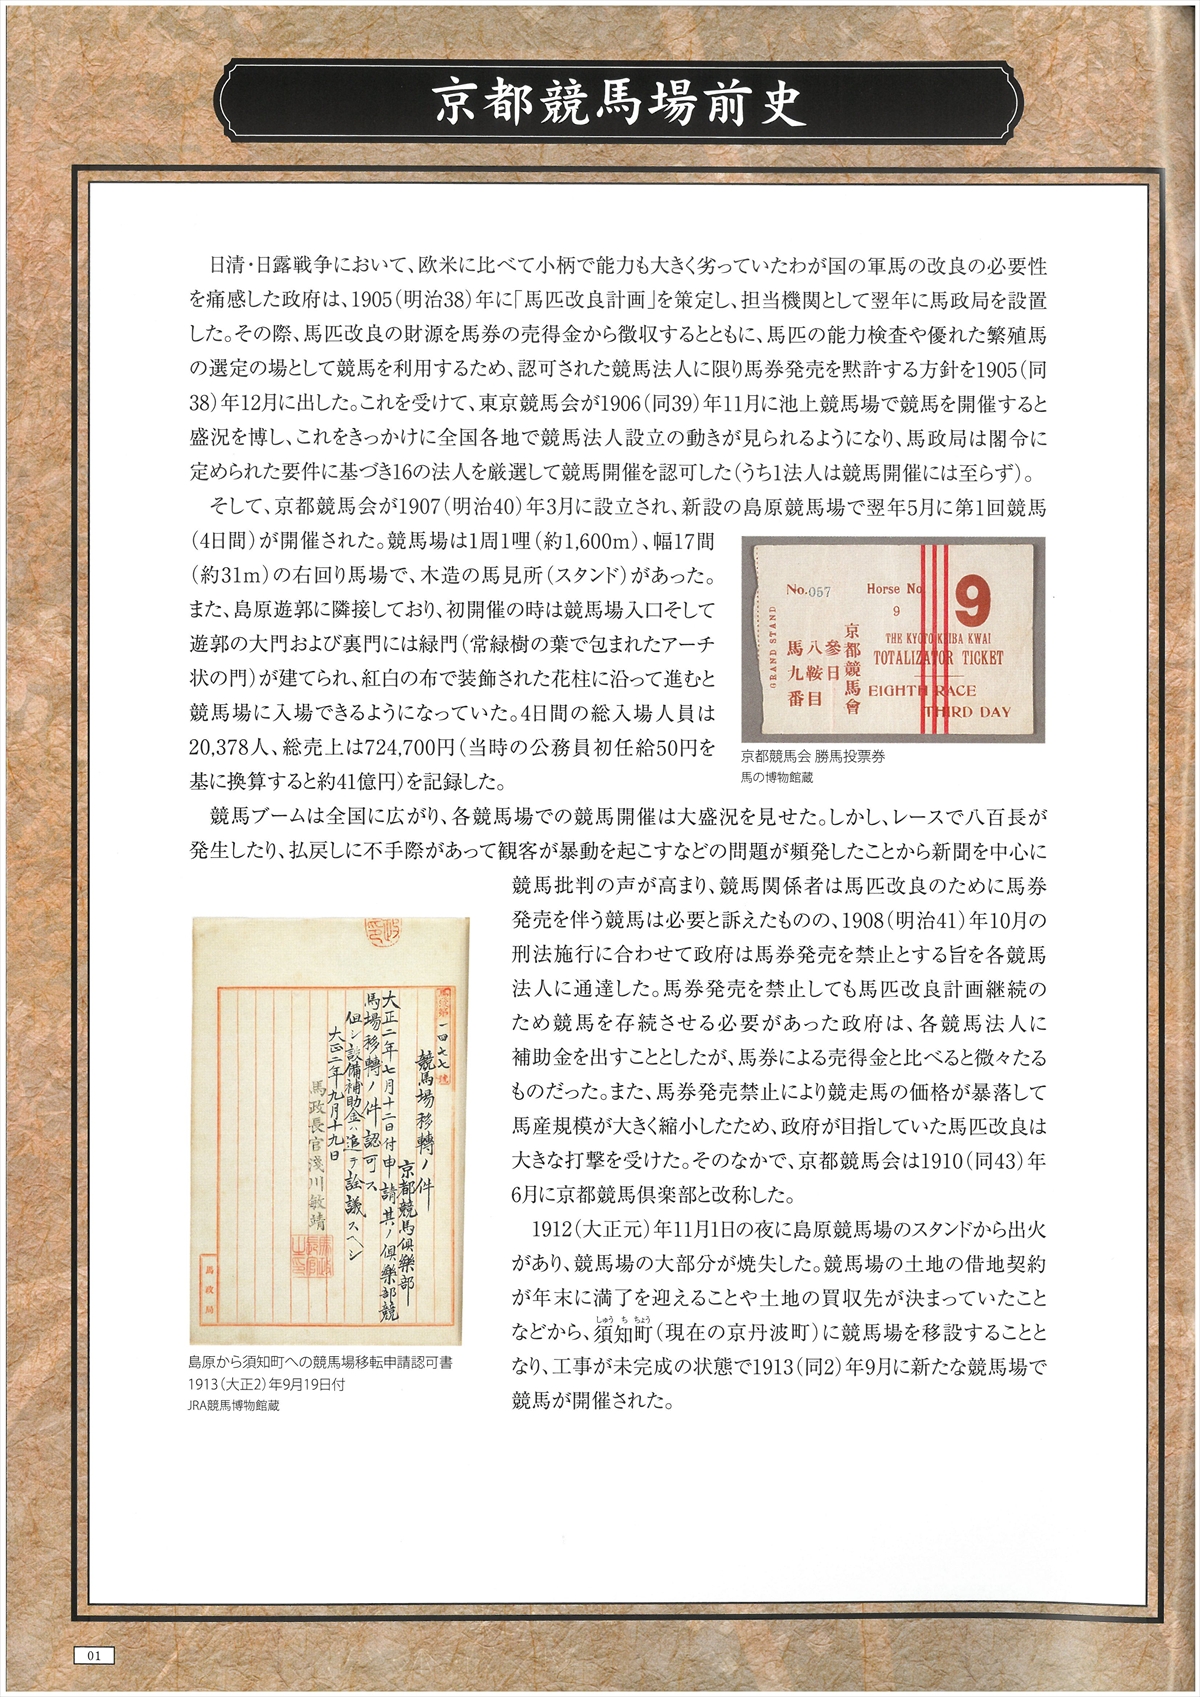 京都競馬場前史
日清・日露戦争において、欧米に比べて小柄で能力も大きく劣っていたわが国の軍馬の改良の必要性
を痛感した政府は、1905（明治38）年に「馬匹改良計画」を策定し、担当機関として翌年に馬政局を設置
した。その際、馬匹改良の財源を馬券の売得金から徴収するとともに、馬匹の能力検査や優れた繁殖馬
の選定の場として競馬を利用するため、認可された競馬法人に限り馬券発売を黙許する方針を1905（同
38）年12月に出した。これを受けて、東京競馬会が1906（同39）年11月に池上競馬場で競馬を開催すると
盛況を博し、これをきっかけに全国各地で競馬法人設立の動きが見られるようになり、馬政局は閣令に
定められた要件に基づき16の法人を厳選して競馬開催を認可した（うち1法人は競馬開催には至らず）。
そして、京都競馬会が1907（明治40）年3月に設立され、新設の島原競馬場で翌年5月に第1回競馬
（4日間）が開催された。競馬場は1周1哩（約1,600m）、幅17間
（約31m）の右回り馬場で、木造の馬見所（スタンド）があった。
また、島原遊郭に隣接しており、初開催の時は競馬場入口そして
遊郭の大門および裏門には緑門（常緑樹の葉で包まれたアーチ
状の門）が建てられ、紅白の布で装飾された花柱に沿って進むと
競馬場に入場できるようになっていた。4日間の総入場人員は
20,378人、総売上は724,700円（当時の公務員初任給50円を
基に換算すると約41億円）を記録した。
No.057
Horse No.
9
9
GRAND STAND
THE KYOTO KEIBA KWAI
TOTALIZATOR TICKET
EIGHTH RACE
THIRD DAY
京都競馬會
參日
八鞍目
馬九番
京都競馬会 勝馬投票券
馬の博物館蔵
競馬ブームは全国に広がり、各競馬場での競馬開催は大盛況を見せた。しかし、レースで八百長が
発生したり、払戻しに不手際があって観客が暴動を起こすなどの問題が頻発したことから新聞を中心に
競馬批判の声が高まり、競馬関係者は馬匹改良のために馬券
発売を伴う競馬は必要と訴えたものの、1908（明治41）年10月の
刑法施行に合わせて政府は馬券発売を禁止とする旨を各競馬
法人に通達した。馬券発売を禁止しても馬匹改良計画継続の
ため競馬を存続させる必要があった政府は、各競馬法人に
補助金を出すこととしたが、馬券による売得金と比べると微々たる
ものだった。また、馬券発売禁止により競走馬の価格が暴落して
馬産規模が大きく縮小したため、政府が目指していた馬匹改良は
大きな打撃を受けた。そのなかで、京都競馬会は1910（同43）年
6月に京都競馬倶楽部と改称した。
1912（大正元）年11月1日の夜に島原競馬場のスタンドから出火
があり、競馬場の大部分が焼失した。競馬場の土地の借地契約
が年末に満了を迎えることや土地の買収先が決まっていたこと
しゅう ち ちょう
などから、須知町（現在の京丹波町）に競馬場を移設することと
なり、工事が未完成の状態で1913（同2）年9月に新たな競馬場で
競馬が開催された。
一四七七號
競馬場移轉ノ件
京都競馬倶樂部
大正二年七月十二日付申請其ノ倶樂部競
馬場移轉ノ件認可ス
但シ設備補助金ハ追テ詮議スヘシ
大正二年九月十九日
馬政長官淺川敏靖
馬政局
島原から須知町への競馬場移転申請認可書
1913（大正2）年9月19日付
JRA競馬博物館蔵
01